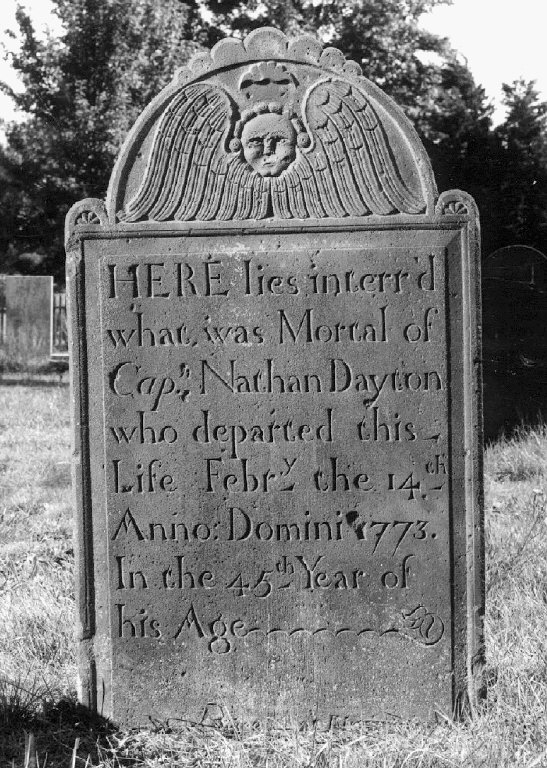 HERE lies interr'd
what was Mortal of
Capᵗ. Nathan Dayton
who departed this
Life Febrʸ the 14ᵗʰ
Anno: Domini 1773.
In the 45ᵗʰ Year of
his Age